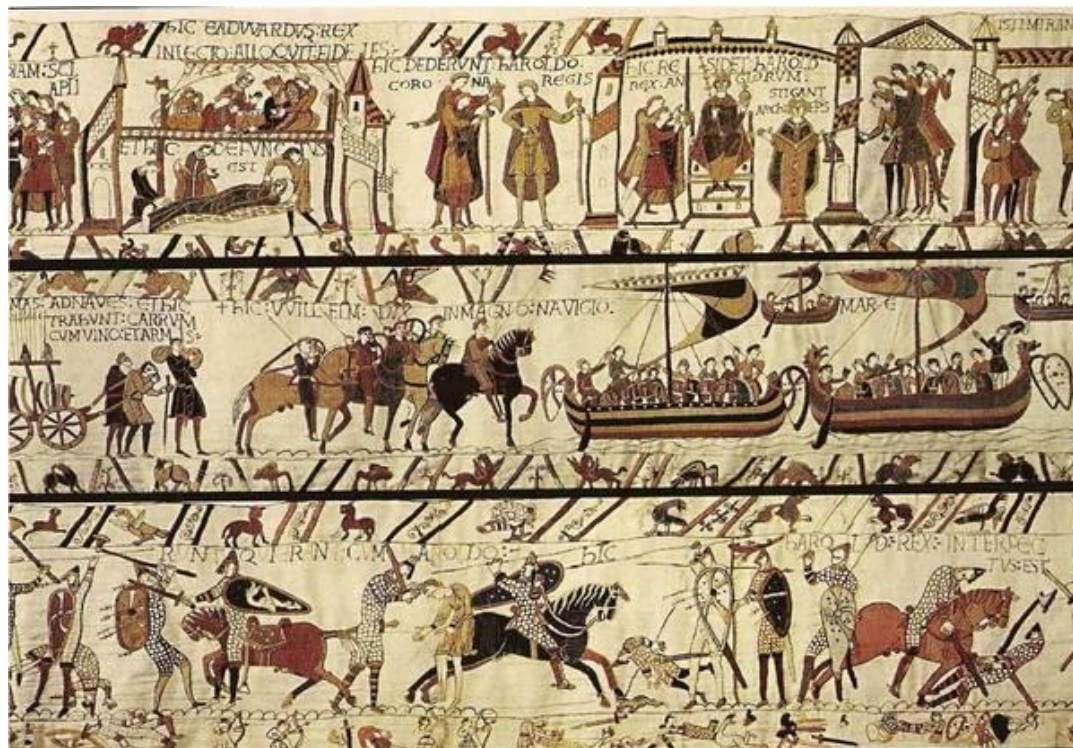 IAM: SCI
hIC EADWARDVS: REX
INLECTO: ALLOQVIT: FIDELES:
ET hIC DEFVNCTVS
EST
hIC DEDERVNT: hAROLDO:
CORONA REGIS
hIC RESIDET: hAROLD
REX: ANGLORVM:
STIGANT
ARChIEPS
ISTI MIRAN
MAS: ADNAVES: ET hIC
TRAhVNT: CARRVM
CVM VINO: ET ARMIS:
+ hIC: VVILLELM: DVX IN MAGNO: NAVIGIO:
MARE
RVNT QVI ERANT CVM hAROLDO:
hIC hAROLD: REX: INTERFEC
TVS: EST